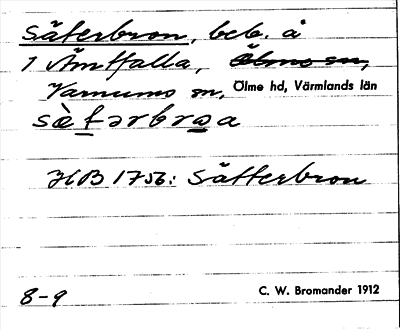 Säterbron, beb. å
1 Ämtfalla, Ölme sn,
Varnums sn, Ölme hd, Värmlands län
sètərbroa
JHB 1756: Sätterbron
8-9 C. W. Bromander 1912